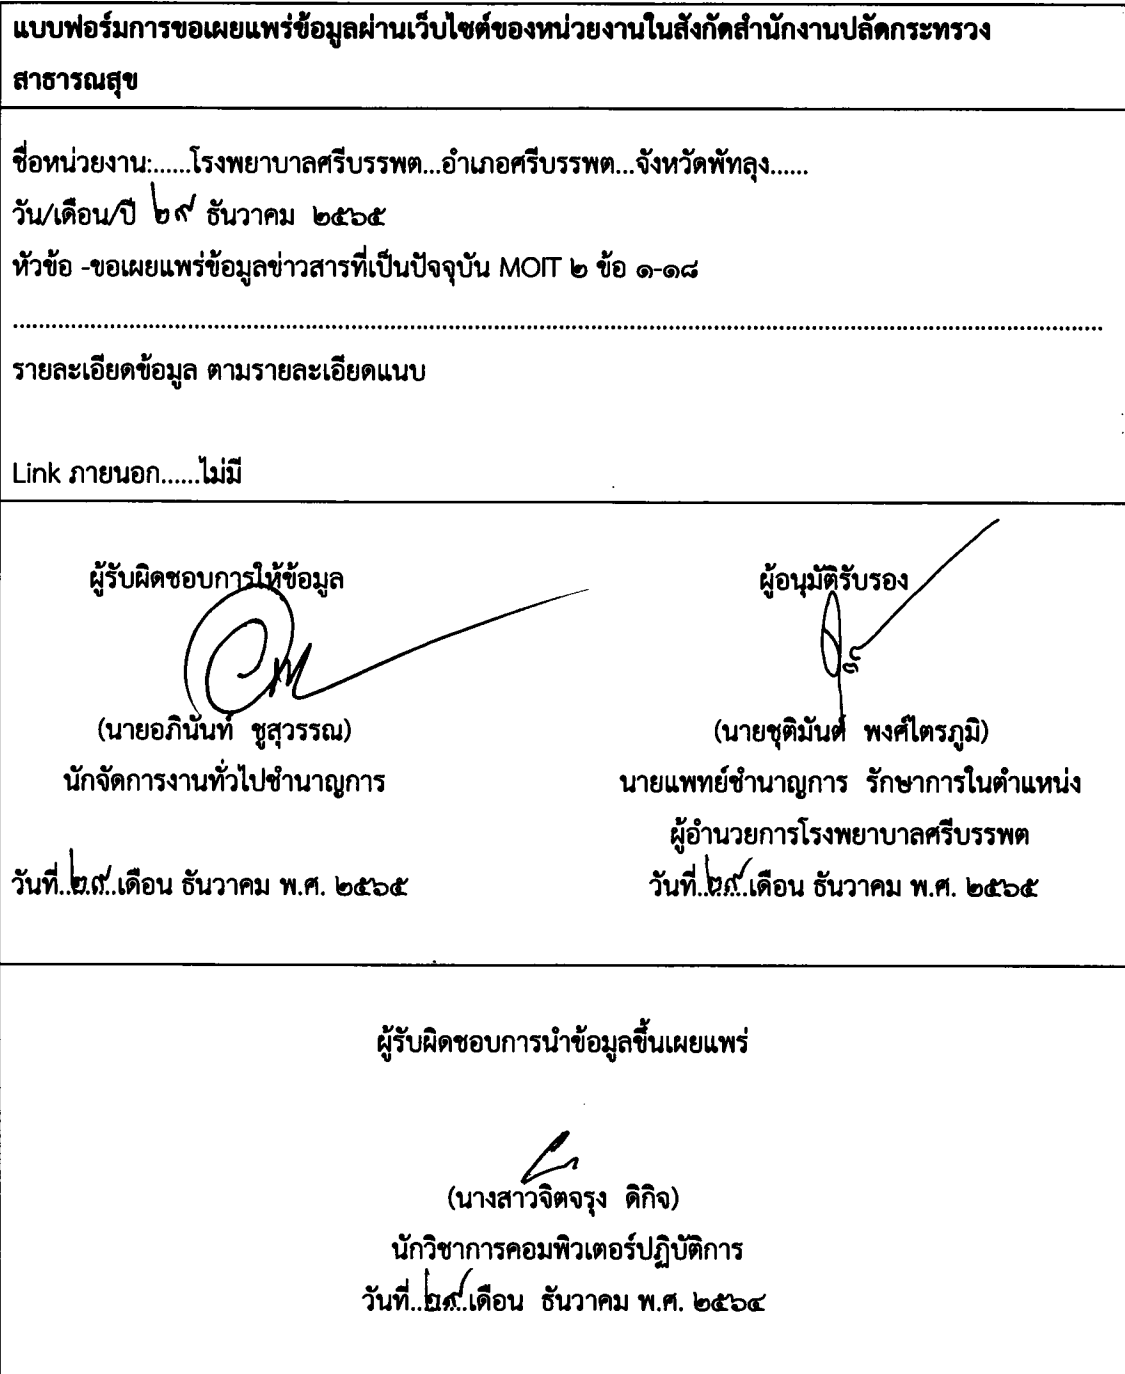 แบบฟอร์มการขอเผยแพร่ข้อมูลผ่านเว็บไซต์ของหน่วยงานในสังกัดสำนักงานปลัดกระทรวง
สาธารณสุข
ชื่อหน่วยงาน:......โรงพยาบาลศรีบรรพต...อำเภอศรีบรรพต...จังหวัดพัทลุง......
วัน/เดือน/ปี ๒๙ ธันวาคม ๒๕๖๕
หัวข้อ -ขอเผยแพร่ข้อมูลข่าวสารที่เป็นปัจจุบัน MOIT ๒ ข้อ ๑-๑๘
รายละเอียดข้อมูล ตามรายละเอียดแนบ
Link ภายนอก......ไม่มี
ผู้รับผิดชอบการให้ข้อมูล
(นายอภินันท์ ชูสุวรรณ)
นักจัดการงานทั่วไปชำนาญการ
วันที่..๒๙..เดือน ธันวาคม พ.ศ. ๒๕๖๕
ผู้อนุมัติรับรอง
(นายชุติมันต์ พงศ์ไตรภูมิ)
นายแพทย์ชำนาญการ รักษาการในตำแหน่ง
ผู้อำนวยการโรงพยาบาลศรีบรรพต
วันที่..๒๙..เดือน ธันวาคม พ.ศ. ๒๕๖๕
ผู้รับผิดชอบการนำข้อมูลขึ้นเผยแพร่
(นางสาวจิตจรุง ดิกิจ)
นักวิชาการคอมพิวเตอร์ปฏิบัติการ
วันที่..๒๙..เดือน ธันวาคม พ.ศ. ๒๕๖๔